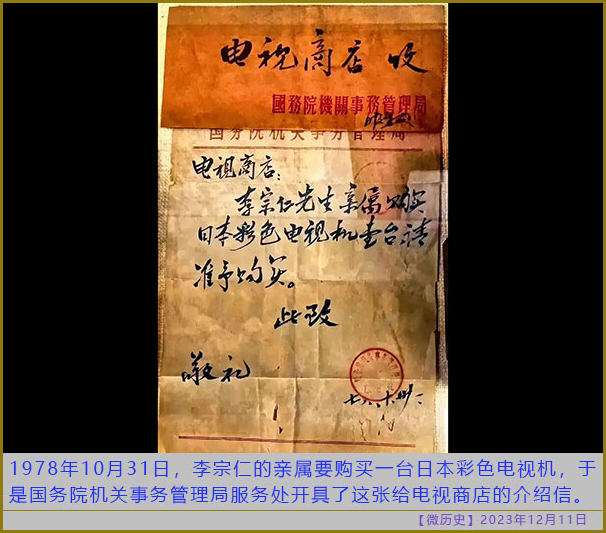 电视商店 收
國務院機關事務管理局
国务院机关事务管理局
电视商店：
李宗仁先生亲属欲购买
日本彩色电视机壹台请
准予购买。
此致
敬礼
1978年10月31日，李宗仁的亲属要购买一台日本彩色电视机，于
是国务院机关事务管理局服务处开具了这张给电视商店的介绍信。
【微历史】2023年12月11日